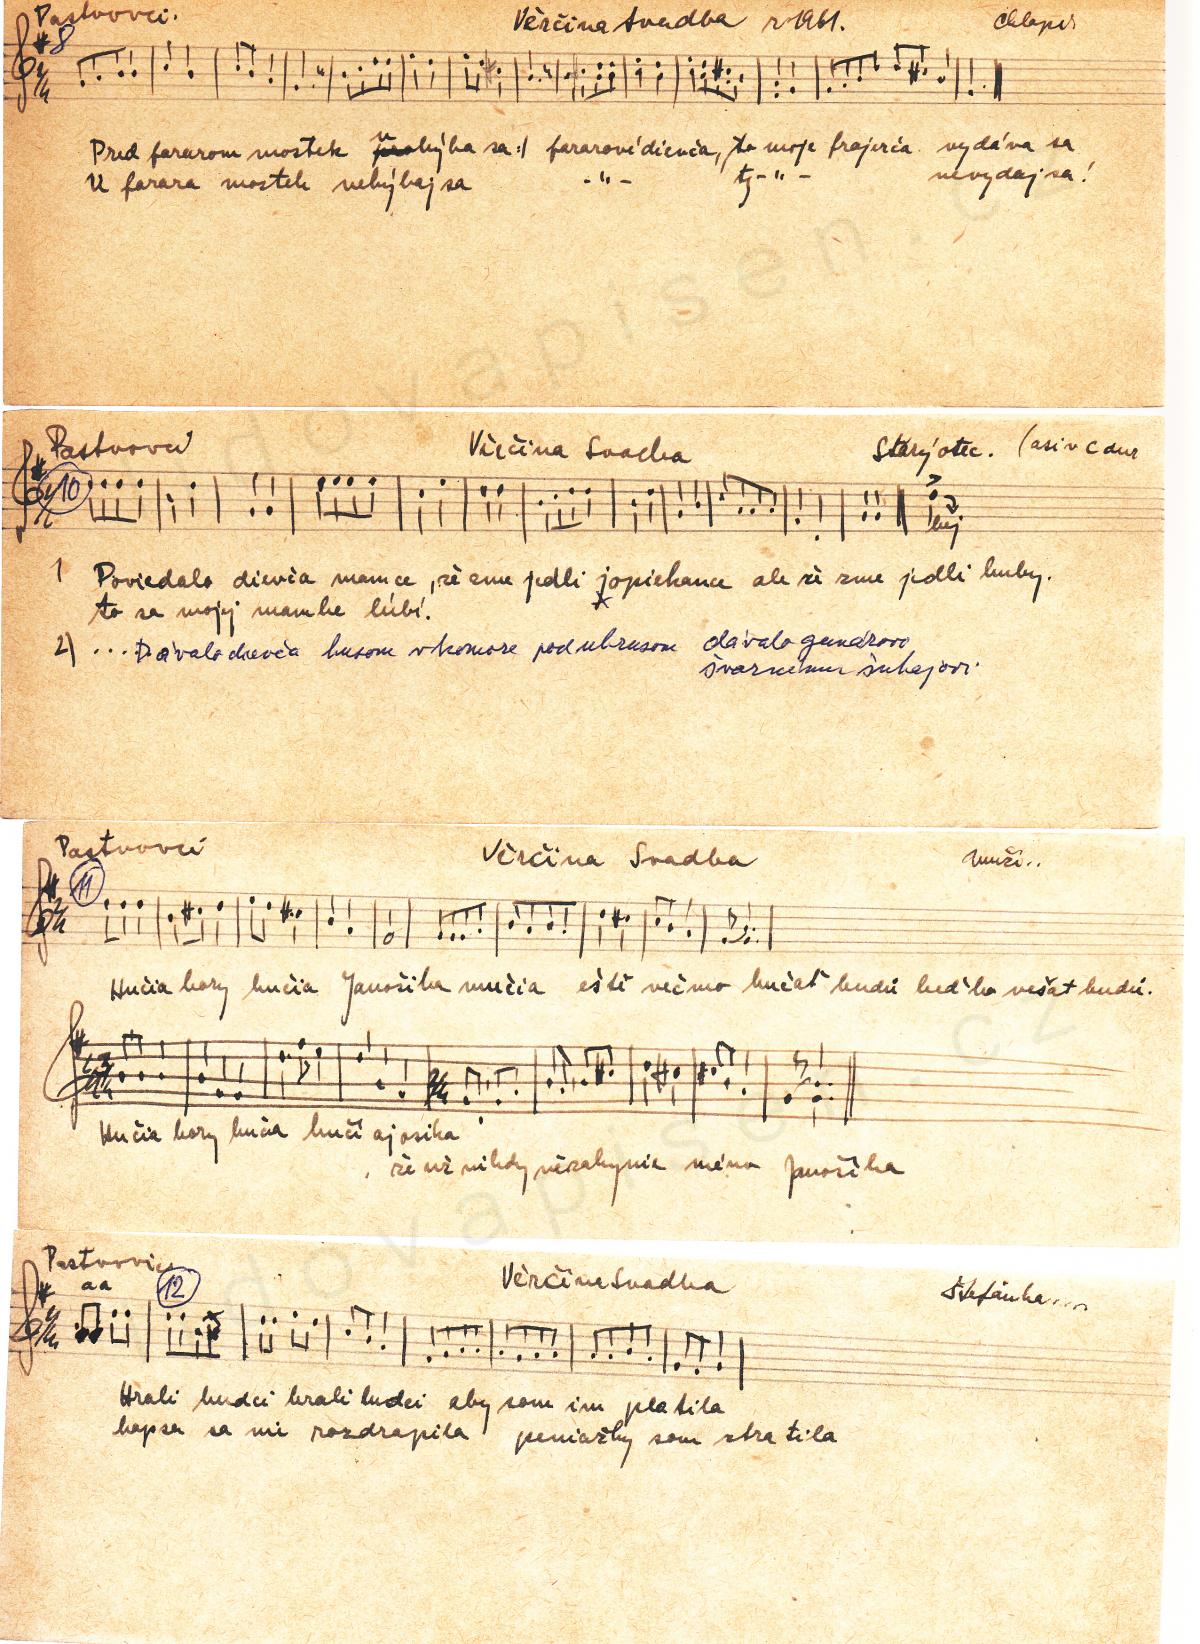 Pastvovci. Věrčina Svadba r 1961. chlapci
8
Pred fararom mostek uohýba sa :/ fararové dievča, to moje frajerča vydáva sa
U farara mostek nehýbaj sa -"- ty -"- nevydaj sa!
Pastvovci Věrčina Svadba Starý otec. (asi v C dur
10
hěj
1 Poviedalo dievča mamce, že sme jedli jopiekance ale že sme jedli huby.
to sa mojej mamke lúbí.
2) ... Dávalo dievča husom v komore pod obrusom dávalo gunárovi
švarnemu šuhajovi.
Pastvovci Věrčina Svadba muži..
11
Hučia hory hučia Janošika mučia ešte večmo hučať budú keď ho vešať budú.
Hučia hory hučia hučí aj osika
že už nikdy nězahynie méno Janošíka
Pastvovci Věrčina Svadba Štefánka....
aa 12
Hrali hudci hrali hudci aby som im platila
kapsa sa mi rozdrapila peniažky som ztratila
dovapisen.cz
dovapisen.cz